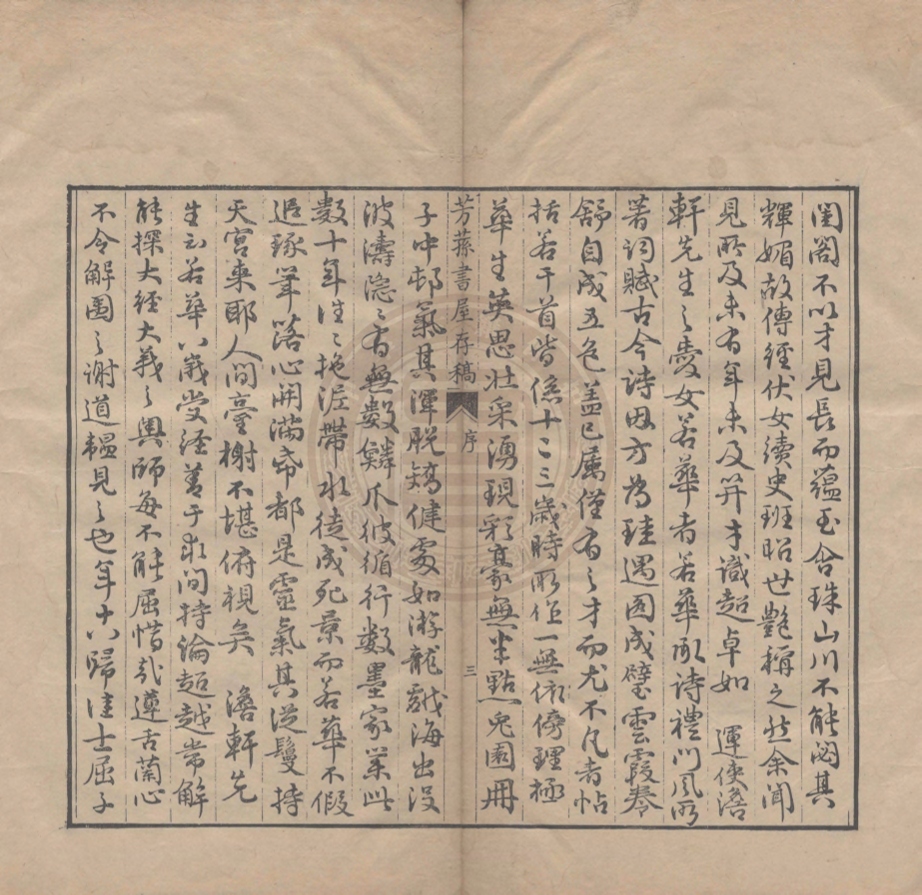 閨閤不以才見長而蘊玉含珠山川不能閟其
輝媚故傳經伏女續史班昭世艷稱之然余聞
見所及未有年未及笄才識超卓如 運使澹
軒先生之愛女若華者若華承詩禮門風所
著詞賦古今詩因方為珪遇圓成璧雲霞卷
舒自成五色蓋已屬僅有之才而尤不凡者帖
括若干首皆係十二三歲時所作一無依傍理極
華生英思壯采湧現彩毫無半點兔園冊
芳蓀書屋存稿 序 三
子中邨氣其渾脫矯健處如游龍戲海出沒
波濤隱隱有無數鱗爪彼循行數墨家業此
數十年往往拖泥帶水徒成死景而若華不假
追琢筆落心開滿帋都是靈氣其從鬘持
天宮來耶人間臺榭不堪俯視矣 澹軒先
生言若華八歲受經善于疑間持論超越常解
能探大經大義之奧師每不能屈惜哉遵舌蘭心
不令解圍之謝道韞見之也年十八歸佳士屈子